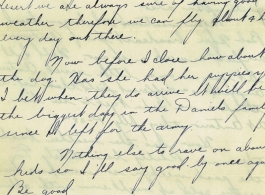 desert we are always sure of having good
weather therefore we can fly almost
every day out there.
Now before I close how about
the dog. Has she had her puppies yet
I bet when they do arrive it will be
the biggest day in the Daniels
since I left for the army.
Nothing else to rave on about
kids so I'll say good by once again
Be good